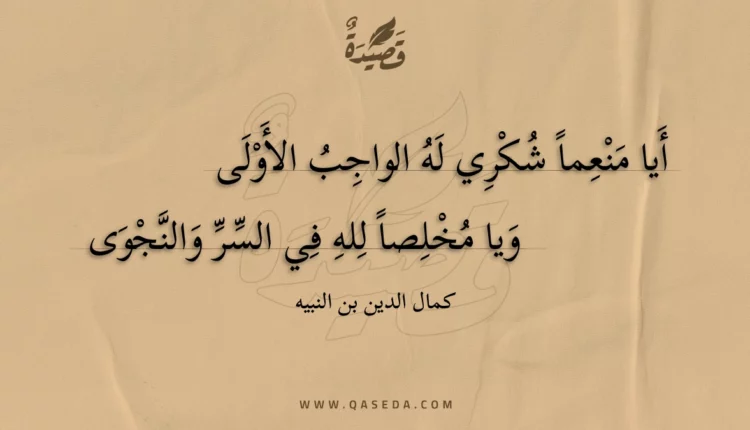 قَصِيْدَةٌ
أَيا مَنْعِماً شُكْرِي لَهُ الواجِبُ الأَوْلَى
وَيا مُخْلِصاً لِلهِ فِي السِّرِّ وَالنَّجْوَى
كمال الدين بن النبيه
WWW.QASEDA.COM